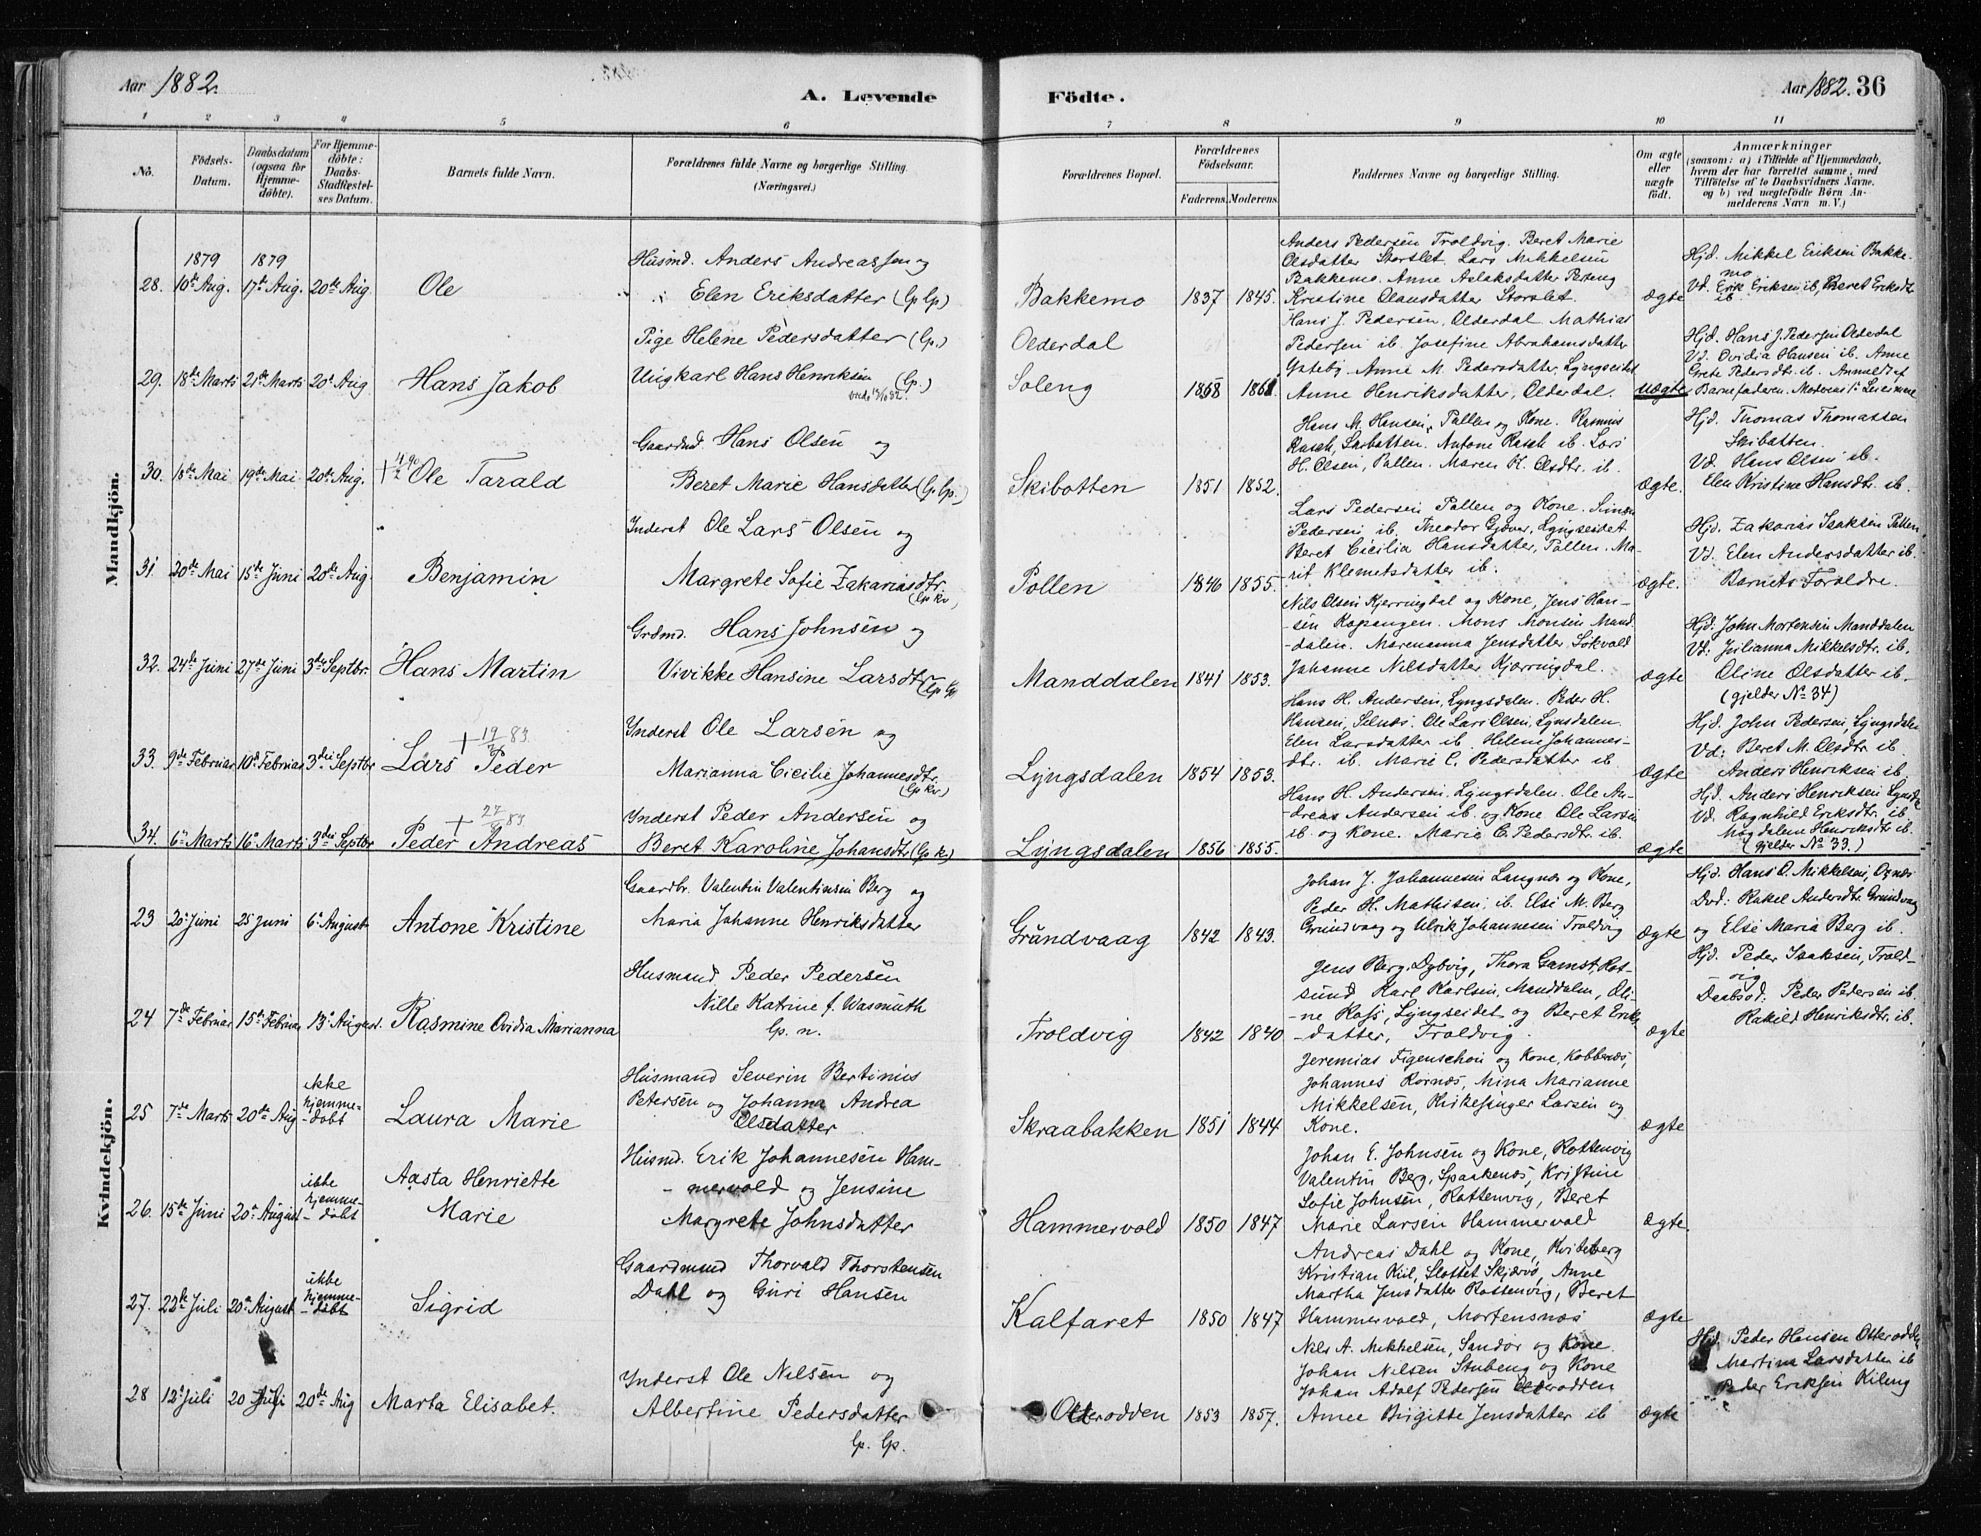 Aar 1882.
A. Levende Födte.
Aar 1882. 36
1 2 3 4 5 6 7 8 9 10 11
No.
Födsels-
Datum.
Daabsdatum
(ogsaa for
Hjemme-
döbte).
For Hjemme-
döbte:
Daabs-
Stadfæstel-
ses Datum.
Barnets fulde Navn.
Forældrenes fulde Navne og borgerlige Stilling.
(Næringsvei.)
Forældrenes Bopæl.
Forældrenes
Födselsaar.
Faderens. Moderens.
Faddernes Navne og borgerlige Stilling.
Om ægte
eller
uægte
födt.
Anmærkninger
(saasom: a) i Tilfælde af Hjemmedaab,
hvem der har forrettet samme, med
Tilföielse af to Daabsvidners Navne,
og b) ved uægtefödte Börn An-
melderens Navn m. V.)
Mandkjön.
28. 1879 10de Aug. 1879 17de Aug. 20de Aug Ole
Husmd. Anders Andreassen og
Elen Eriksdatter (Gp Gp)
Bakkemo 1837 1845.
Anders Pedersen Troldvig. Beret Marie
Olsdatter Storslet. Lars Mikkelsen
Bakkemo. Anne Aslaksdatter
Kristine Olausdatter Storslet.
ægte
Hjd. Mikkel Eriksen Bakke-
mo
Vd. Erik Eriksen ib, Beret Eriksdtr
ib
29. 18de Marts 21de Marts 20de Aug Hans Jakob
Pige Helene Pedersdatter (Gp.)
Ungkarl Hans Henriksen (Gp.)
Olderdal
Soleng 1858 1861
Hans J. Pedersen, Olderdal Mathias
Pedersen ib. Josefine Abrahamsdatter
Ysteby. Anne M. Pedersdatter, Lyngseidet
Anne Henriksdatter, Olderdal.
uægte
Hjd. Hans J. Pedersen Olderdal
Vd. Ovidia Hansen ib. Anne
Grete Pedersdtr. ib. Anmeldt af
Barnefaderen. Moderens 1ste Leiermaal
30. 18de Mai 19de Mai 20de Aug. + 4/2 90 Ole Tarald
Gaardmd. Hans Olsen og
Beret Marie Hansdatter (Gp Gp.)
Skibotten 1851 1852.
Hans M. Hansen, Pollen og Kone. Rasmus
Rasch, Skibotten. Antone Rasch ib. Lars
H. Olsen, Pollen. Maren H. Olsdtr. ib.
ægte.
Hjd. Thomas Thomassen
Skibotten.
Vd. Hans Olsen ib.
Elen Kristine Hansdtr. ib.
31. 20de Mai 15de Juni 20de Aug Benjamin
Inderst Ole Lars Olsen og
Margrete Sofie Zakariasdtr.
(Gp kv)
Pollen 1846 1855.
Lars Pedersen Pollen og Kone. Simon
Pedersen ib. Theodor Gjæver, Lyngseidet
Beret Cicilia Hansdatter, Pollen. Ma-
rit Klemetsdatter ib.
ægte.
Hjd. Zakarias Isaksen Pollen
Vd. Elen Andersdatter ib.
Barnets Forældre.
32. 24de Juni 27de Juni 3die Septbr. Hans Martin
Grdmd. Hans Johnsen og
Vivikke Hansine Larsdtr. (Gp Gp)
Manddalen 1841 1853.
Nils Olsen Kjerringdal og Kone, Jens Han-
sen Ropangen. Mons Monsen Mand-
dalen. Marenanna Jensdatter, Sokvold
Johanne Nilsdatter Kjærringdal.
ægte
Hjd. John Mortensen Manddalen
Vd. Julianna Mikkelsdtr. ib.
Oline Olsdatter ib.
(gjelder No 34)
33. 9de Februar 10de Februar 3die Septbr + 19/3 83. Lars Peder
Inderst Ole Larsen og
Marianna Cicilie Johannesdtr.
(Gp kv)
Lyngsdalen 1854 1853.
Hans H. Andersen, Lyngsdalen. Peder H.
Hansen, Selnæs. Ole Lars Olsen, Lyngsdalen.
Elen Larsdatter ib. Helene Johannes-
dtr. ib. Marie C. Pedersdatter ib
ægte
Hjd. John Pedersen, Lyngsdalen
Vd: Beret M. Olsdtr ib.
Anders Henriksen ib
34. 6te Marts 16de Marts 3die Septbr + 27/3 83 Peder Andreas
Inderst Peder Andersen og
Beret Karoline Johansdtr (Gp k)
Lyngsdalen 1856 1855.
Hans H. Andersen, Lyngsdalen. Ole An-
dreas Andersen ib. og Kone Ole Larsen
ib. og Kone. Marie C. Pedersdtr. ib.
ægte
Hjd. Anders Henriksen Lyngsd.
Vd. Ragnhild Eriksdtr. ib
Magdalene Henriksdtr ib.
(gjelder No 33.)
Kvindekjön.
23 20de Juni 25 Juni 6te August Antone Kristine
Gaardbr. Valentin Valentinsen Berg og
Maria Johanne Henriksdatter
Grundvaag 1842 1843.
Johan J. Johannesen Langnæs og Kone,
Peder H. Mathisen, ib. Else M. Berg
Grundvaag og Ulrik Johannesen Troldvig
ægte
Hjd. Hans O. Mikkelsen, Oxnæs
Dvd: Rakel Andersdtr. Grundvaag
og Else Maria Berg ib.
24 7de Februar 15de Februar 13de August. Rasmine Ovidia Marianna
Husmand Peder Pedersen
Nille Katrine f. Wasmuth
Gp. n.
Troldvig 1842 1840
Jens Berg, Dybvig, Thora Gamst, Rot-
sund Karl Karlsen, Manddalen, Oli-
ne Ross, Lyngseidet og Beret Eriks-
datter, Troldvig.
ægte
Hjd. Peder Isaksen, Trold-
vig
Daabsvd: Peder Pedersen ib.
Rakild Henriksdtr. ib.
25 7de Marts 20de Aug ikke
hjemme-
-döbt Laura Marie
Husmand Severin Bertinius
Petersen og Johanna Andrea
Olsdatter
Skraabakken 1851 1844
Jeremias Figenschou og Kone, Kobbenæs,
Johannes Rornæs, Mina Marianne
Mikkelsen, Kirkesanger Larsen og
Kone.
ægte
26. 15de Juni 20de August ikke
hjemme-
-döbt Aasta Henriette
Marie
Husmd. Erik Johannesen Ham-
-mervold og Jensine
Margrete Johnsdatter
Hammervold 1850 1847
Johan E. Johnsen og Kone, Rottenvig
Valentin Berg, Spaakenæs, Kristine
Sofie Johnsen, Rottenvig, Beret
Marie Larsen Hammervold
ægte
27. 22de Juli 20de August ikke
hjemme-
-döbt Sigrid
Gaardmand Thorvald Thorstensen
Dahl og Guri Hansen
Kalfaret 1850 1847
Andreas Dahl og Kone, Kviteberg
Kristian Kiil, Slottet Skjærvö, Anne
Martha Jensdatter Rottenvig, Beret
Hammervold, Mortensnæs
ægte
28 12te Juli 20 Juli 20de Aug Marta Elisabet.
Inderst Ole Nilsen og
Albertine Pedersdatter
Gp. Gp.
Otterodden 1853 1857.
Nils A. Mikkelsen, Sandör og Kone.
Johan Nilsen Stubeng og Kone
Johan Adolf Pedersen Olderodden
Anne Birgitte Jensdatter ib
ægte
Hjd. Peder Hansen Otterodden
Martina Larsdatter ib
Peder Eriksen Kileng